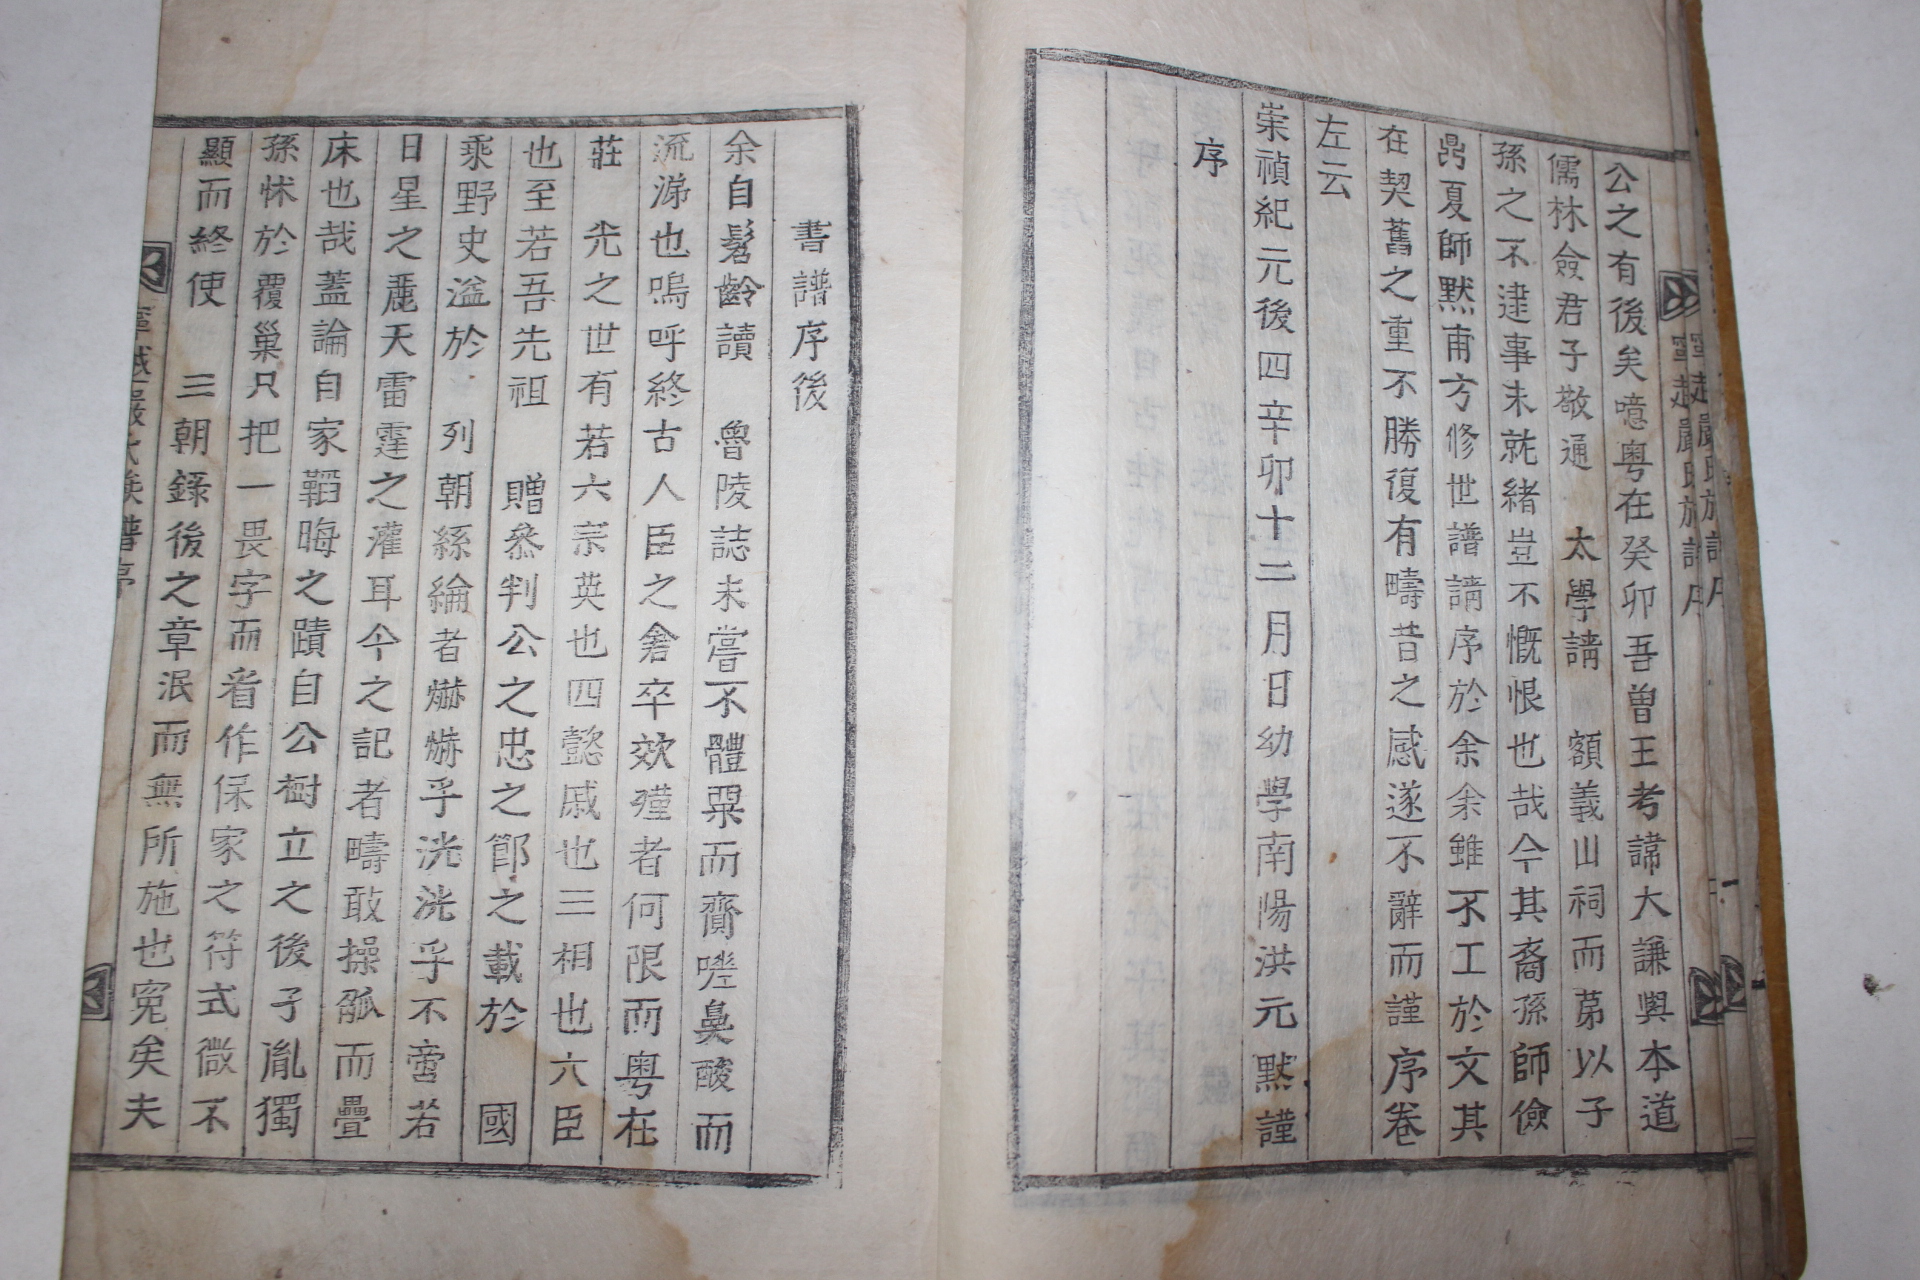 公之有後矣噫粤在癸卯吾曾王考諱大謙與本道
儒林僉君子敬通 太學請 額義山祠而苐以子
孫之不逮事未就緒豈不慨恨也哉今其裔孫師儉
昺夏師黙甫方修世譜請序於余余雖不工於文其
在契舊之重不勝復有疇昔之感遂不辭而謹序卷
左云
崇禎紀元後四辛卯十二月日幼學南陽洪元黙謹
序
書譜序後
余自髫齡讀 魯陵誌未嘗不體粟而齎嗟鼻酸而
流涕也嗚呼終古人臣之倉卒效殣者何限而粤在
莊 光之世有若六宗英也四懿戚也三相也六臣
也至若吾先祖 贈叅判公之忠之節之載於 國
乘野史溢於 列朝絲綸者爀爀乎洸洸乎不啻若
日星之麗天雷霆之灌耳今之記者疇敢操觚而疊
床也哉蓋論自家韜晦之蹟自公樹立之後子胤獨
孫怵於覆巢只把一畏字而看作保家之符式微不
顯而終使 三朝錄後之章泯而無所施也寃矣夫
寧越嚴氏族譜序